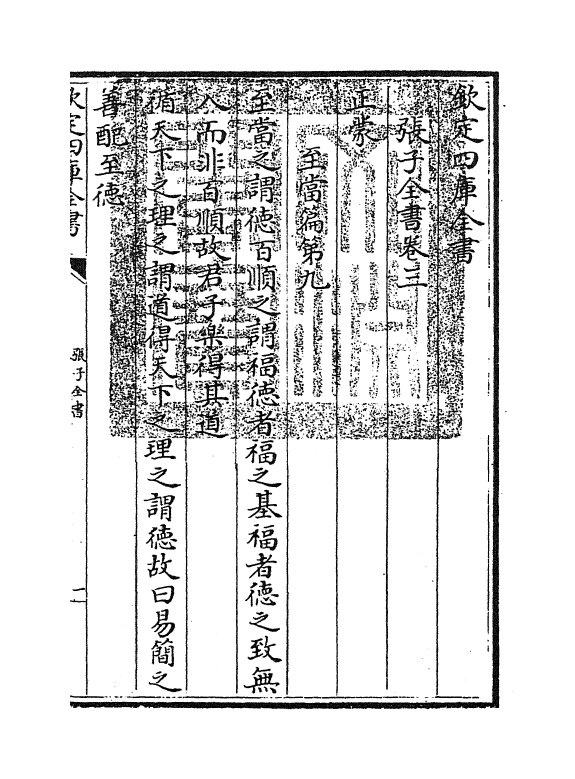 欽定四庫全書
張子全書卷三
正蒙
至當篇第九
至當之謂徳百順之謂福徳者福之基福者徳之致無
入而非百順故君子樂得其道
循天下之理之謂道得天下之理之謂徳故曰易簡之
善配至徳
欽定四庫全書
張子全書